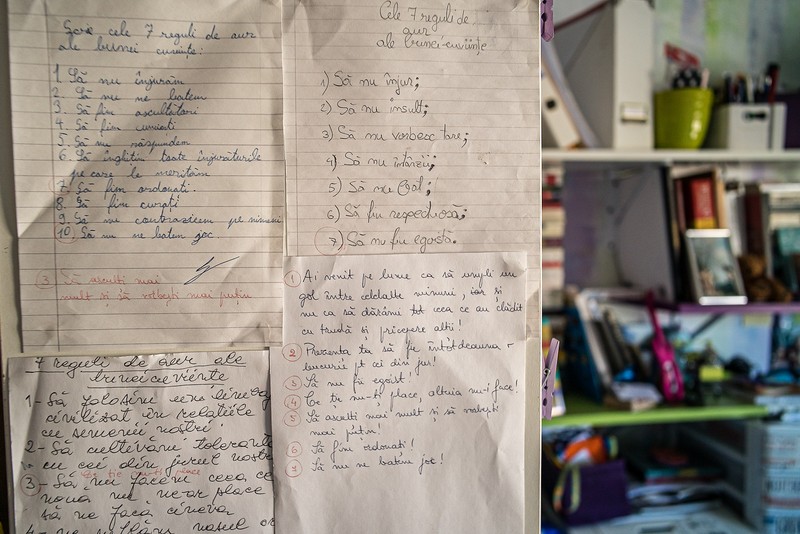 Scrie cele 7 reguli de aur
ale bunei cuviințe:
1. Să nu înjurăm
2. Să nu ne batem
3. Să fim ascultători
4. Să fim cuminți
5. Să nu răspundem
6. Să înghițim toate înjurăturile
pe care le merităm
7. Să fim ordonați.
8. Să fim curați
9. Să nu contrazicem pe nimeni
10. Să nu ne batem joc.
3 Să asculți mai
mult și să vorbești mai puțin
Cele 7 reguli de
aur
ale bunei-cuviințe
1) Să nu înjur;
2) Să nu insult;
3) Să nu vorbesc tare;
4) Să nu întârzii;
5) Să nu
6) Să fiu respectuoasă;
7) Să nu fiu egoistă.
1 Ai venit pe lume ca să umpli un
gol între celelalte minuni, iar și
nu ca să dărâmi tot ceea ce au clădit
cu trudă și pricepere alții!
2 Prezența ta să fie întotdeauna
bucurie pt cei din jur!
3 Să nu fii egoist!
4 Ce ție nu-ți place, altuia nu-i face!
5 Să asculți mai mult și să vorbești
mai puțin!
6 Să fim ordonați!
7 Să nu ne batem joc!
7 reguli de aur ale
bunei cuviințe
1- Să folosim un limbaj
civilizat în relațiile
cu semenii noștri
2- Să cultivăm toleranța
cu cei din jurul nostru
place
3- Să nu facem ceea ce
nouă nu ne-ar place
să ne facă cineva
4- nasul